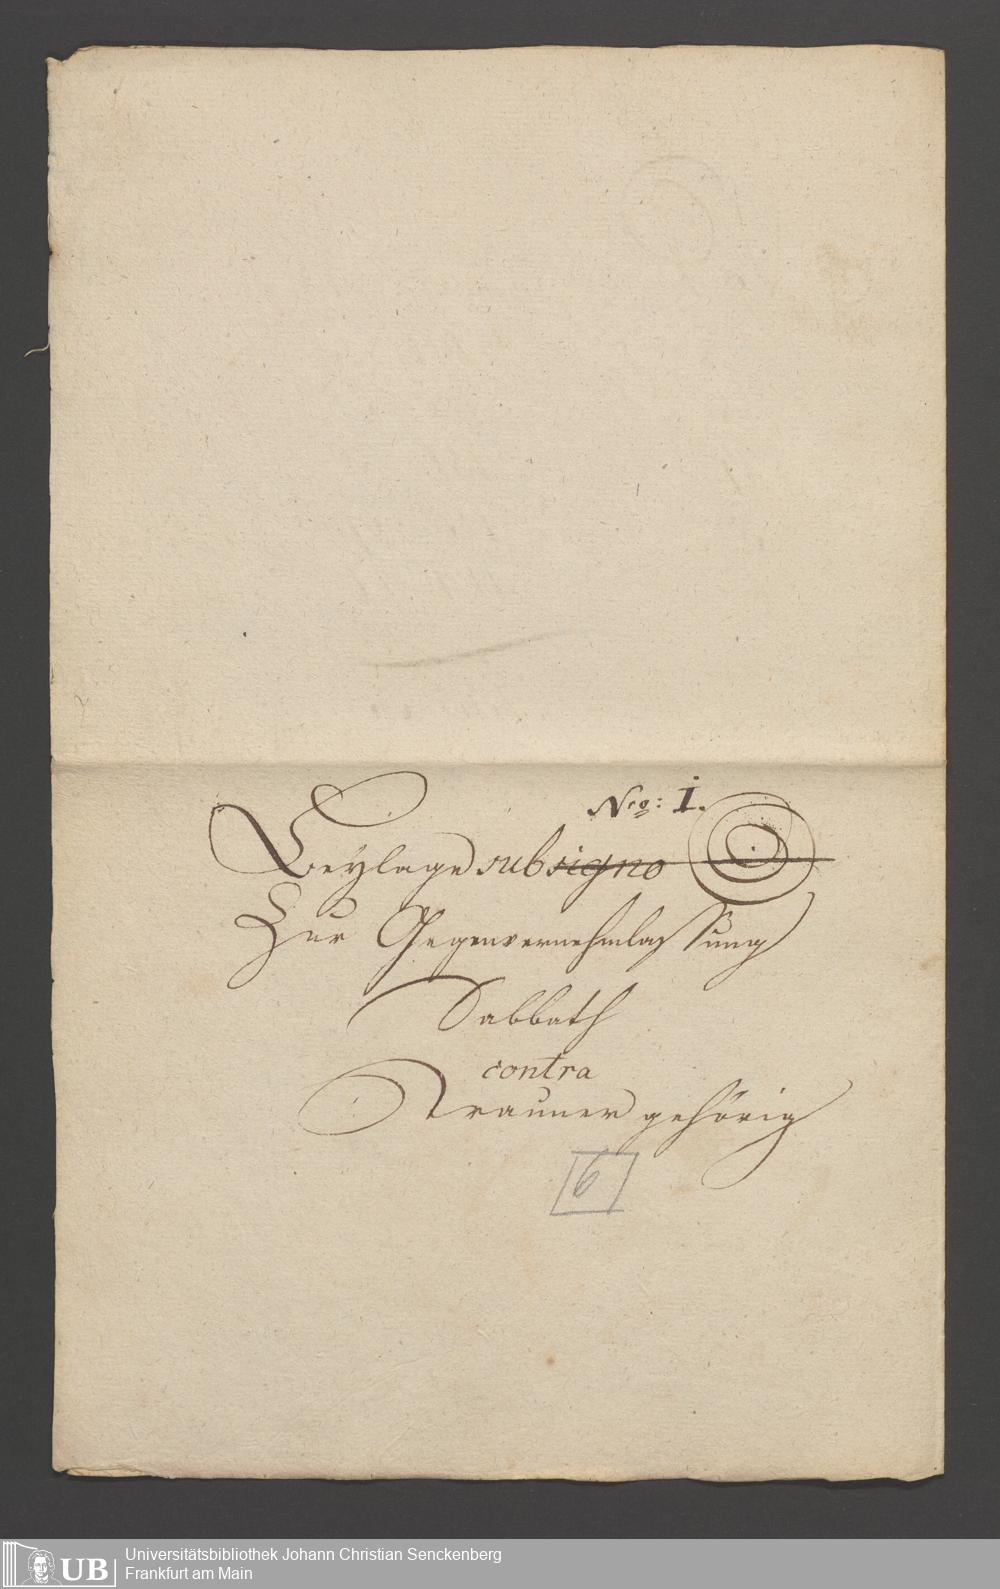 Nro: I.
Beylage sub signo
Zur Gegenvernehmlassung
Sabbath
contra
Trauner gehörig
6
Universitätsbibliothek Johann Christian Senckenberg
Frankfurt am Main
UB